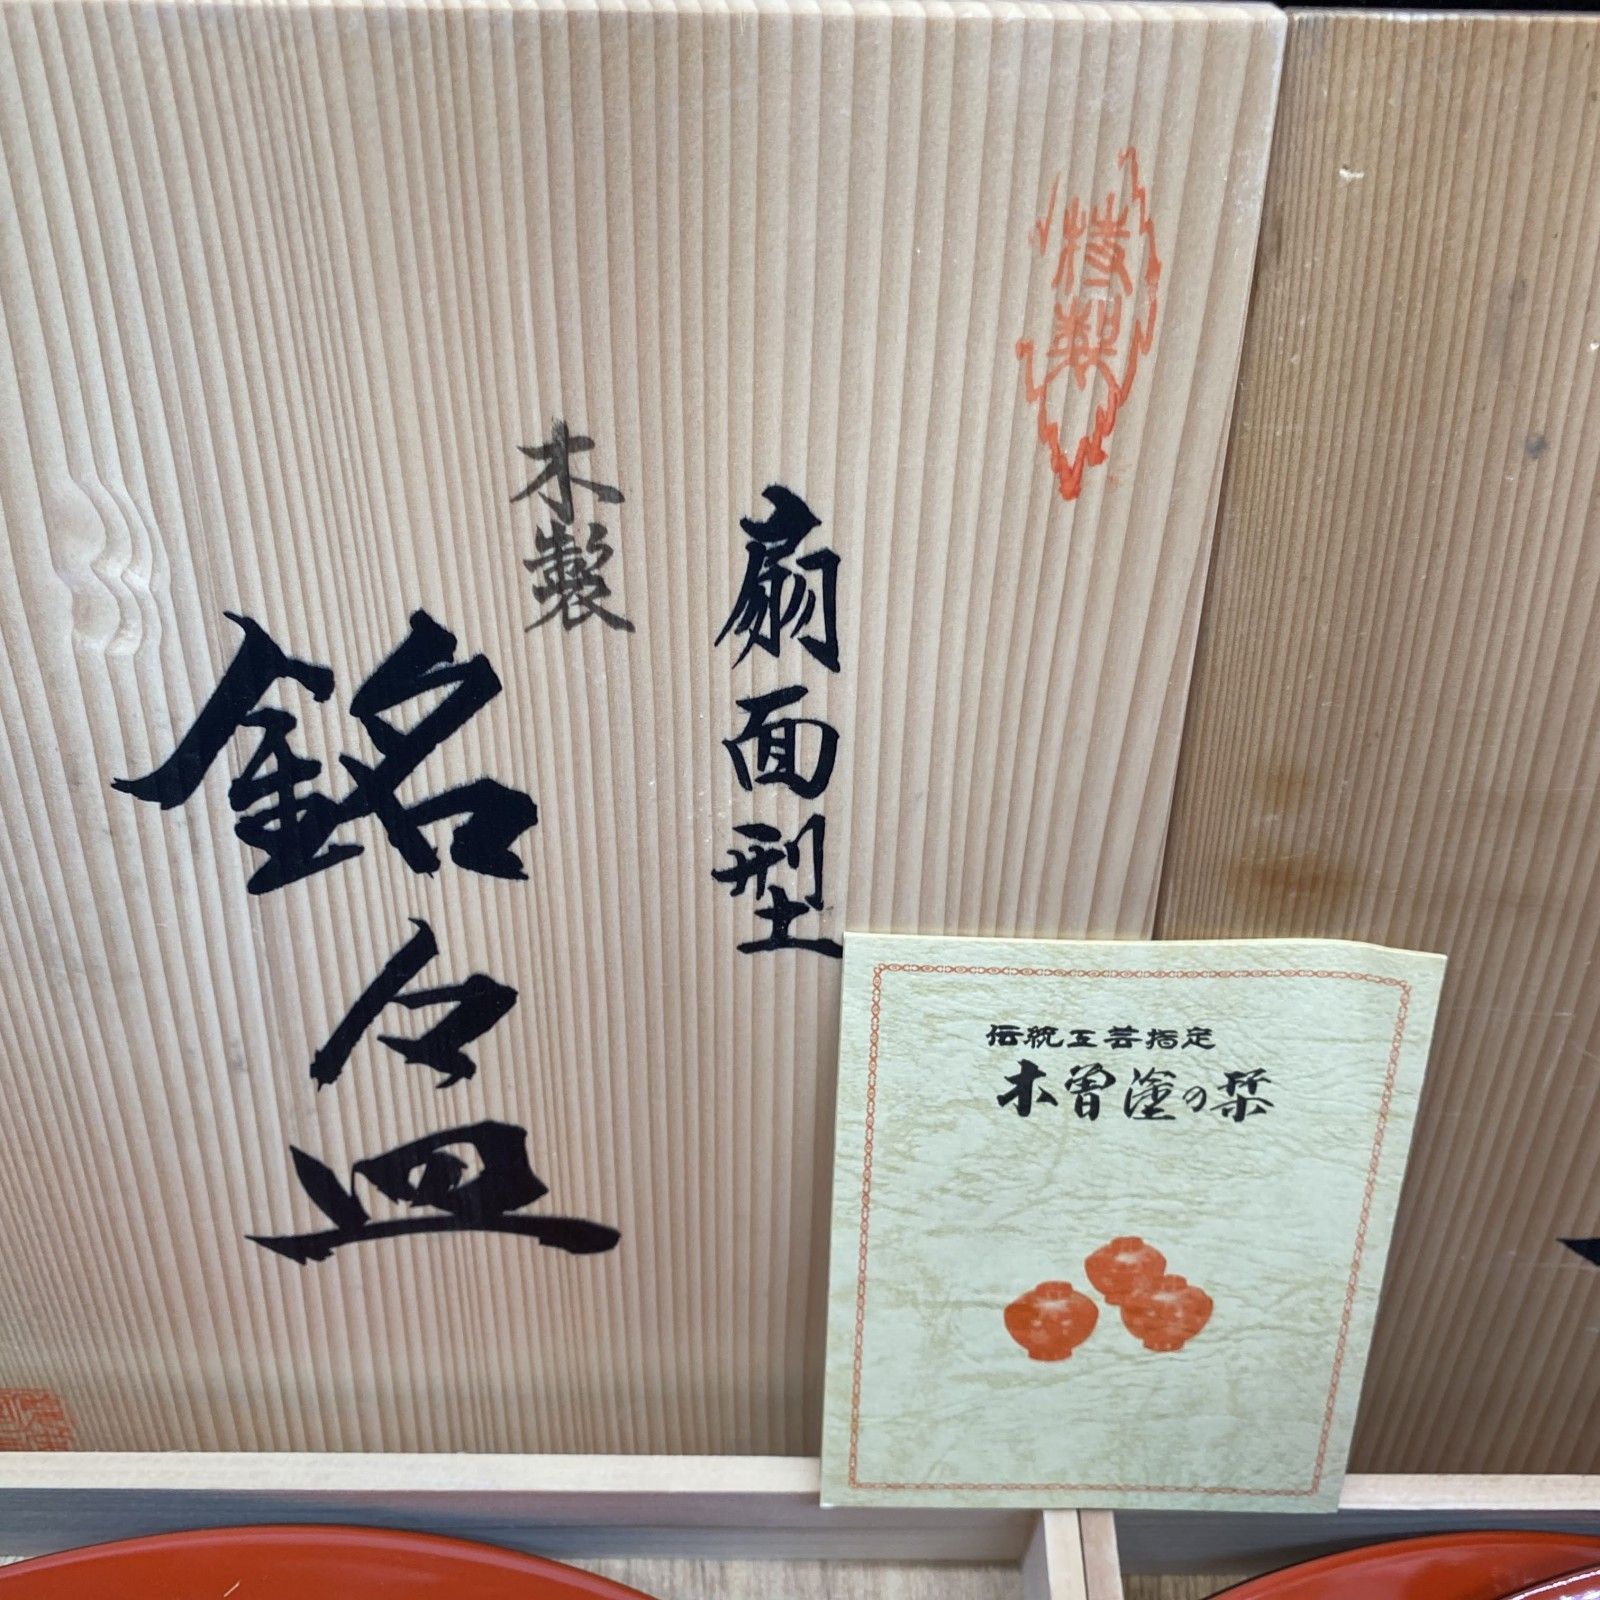 特製
扇面型
木製
銘々皿
伝統工芸指定
木曽塗の栞